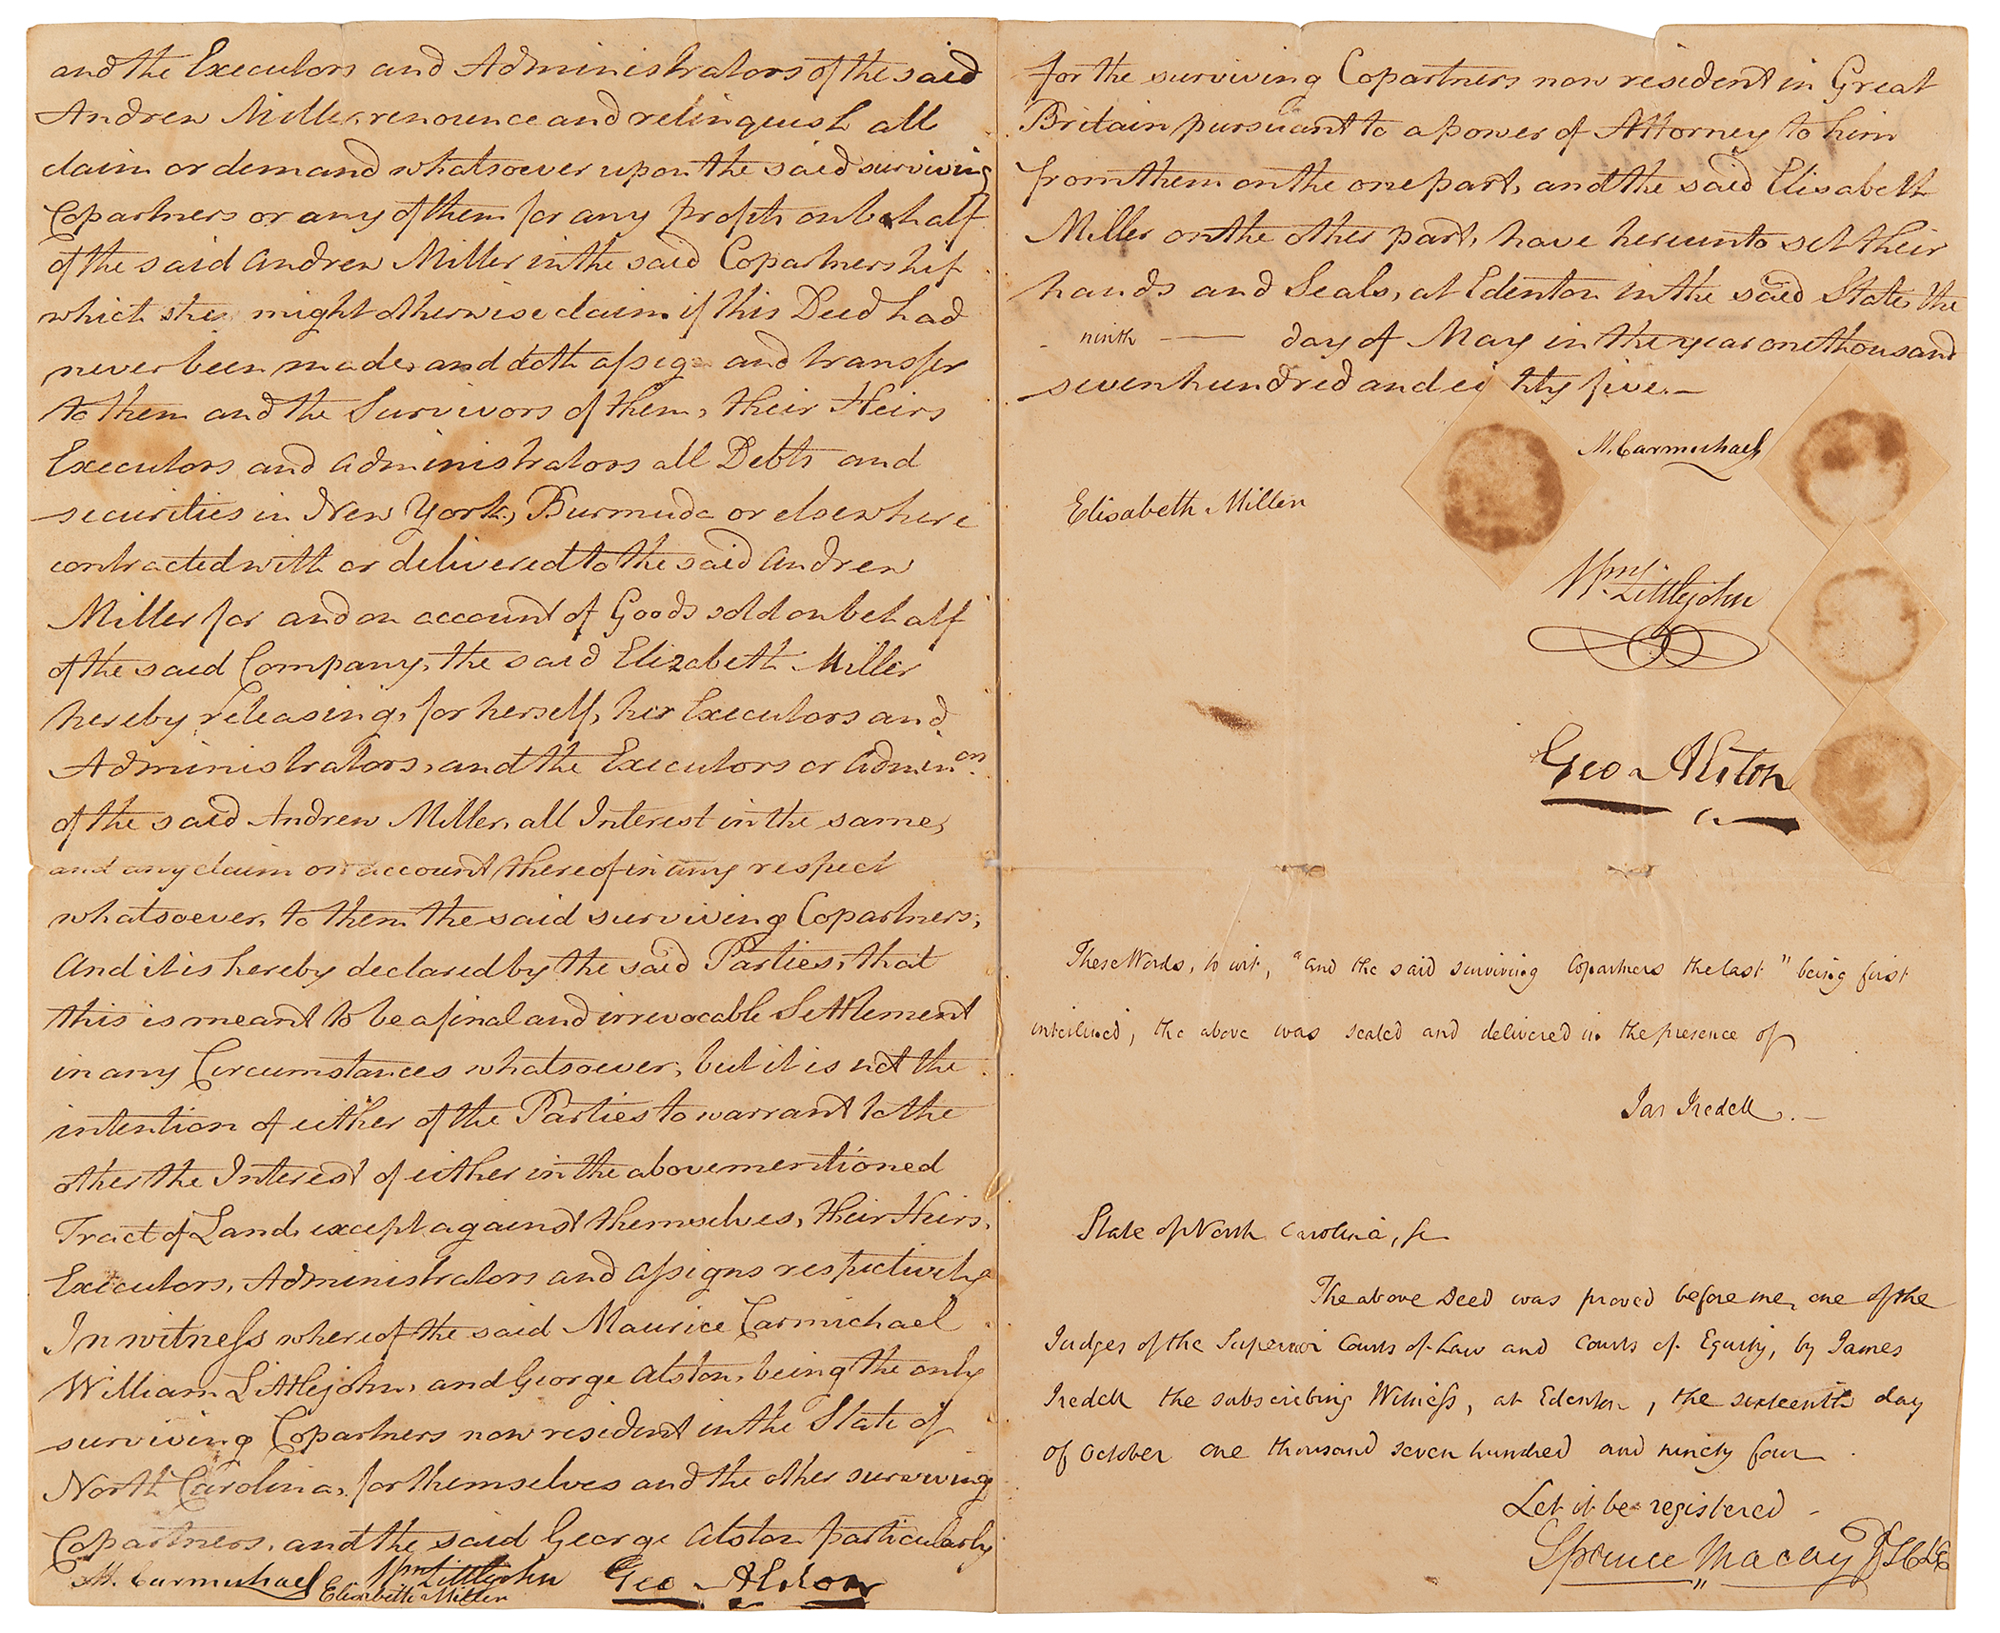 and the Executors and Administrators of the said
Andrew Miller, renounce and relinquish all
claim or demand whatsoever upon the said surviving
Copartners or any of them for any profits on behalf
of the said Andrew Miller in the said Copartnership
which she might otherwise claim if this Deed had
never been made, and doth assign and transfer
to them and the Survivors of them, their Heirs
Executors and Administrators all Debts and
securities in New York, Burmuda or elsewhere
contracted with or delivered to the said Andrew
Miller for and on account of Goods sold on behalf
of the said Company, the said Elizabeth Miller
hereby releasing, for herself, her Executors and
Administrators, and the Executors or Admin.on
of the said Andrew Miller, all Interest in the same,
and any claim on account thereof in any respect
whatsoever, to them the said surviving Copartners;
And it is hereby declared by the said Parties, that
this is meant to be a final and irrevocable Settlement
in any Circumstances whatsoever, but it is not the
intention of either of the Parties to warrant to the
other the Interest of either in the abovementioned
Tract of Land, except against themselves, their Heirs,
Executors, Administrators and assigns respectively
In witness whereof the said Maurice Carmichael
William Littlejohn, and George Alston, being the only
surviving Copartners now resident in the State of
North Carolina, for themselves and the other surviving
Copartners, and the said George Alston particularly
M. Carmichael Wm Littlejohn Geo Alston
Elisabeth Miller
for the surviving Copartners now resident in Great
Britain pursuant to a power of Attorney to him
from them on the one part, and the said Elisabeth
Miller on the other part, have hereunto set their
hands and Seals, at Edenton in the said State, the
ninth — day of May in the year one thousand
seven hundred and eighty five.—
M. Carmichael
Elisabeth Miller
Wm Littlejohn
Geo Alston
These Words, to wit, "and the said surviving Copartners the last" being first
interlined, the above was sealed and delivered in the presence of
Jas Iredell. —
State of North Carolina, sc
The above Deed was proved before me, one of the
Judges of the Superior Courts of Law and Courts of Equity, by James
Iredell the subscribing Witness, at Edenton, the sixteenth day
of October one thousand seven hundred and ninety four.
Let it be registered —
Spruce Macay JSCL&E